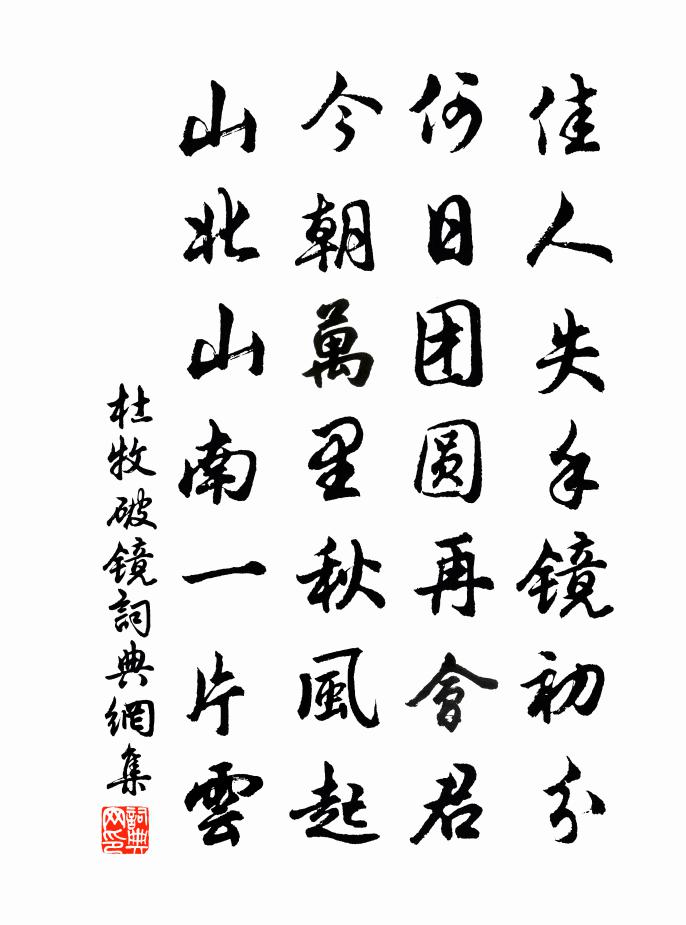 佳人失手镜初分
何日团圆再會君
今朝萬里秋風起
山北山南一片雲
杜牧破镜詞典網集
詞典网印